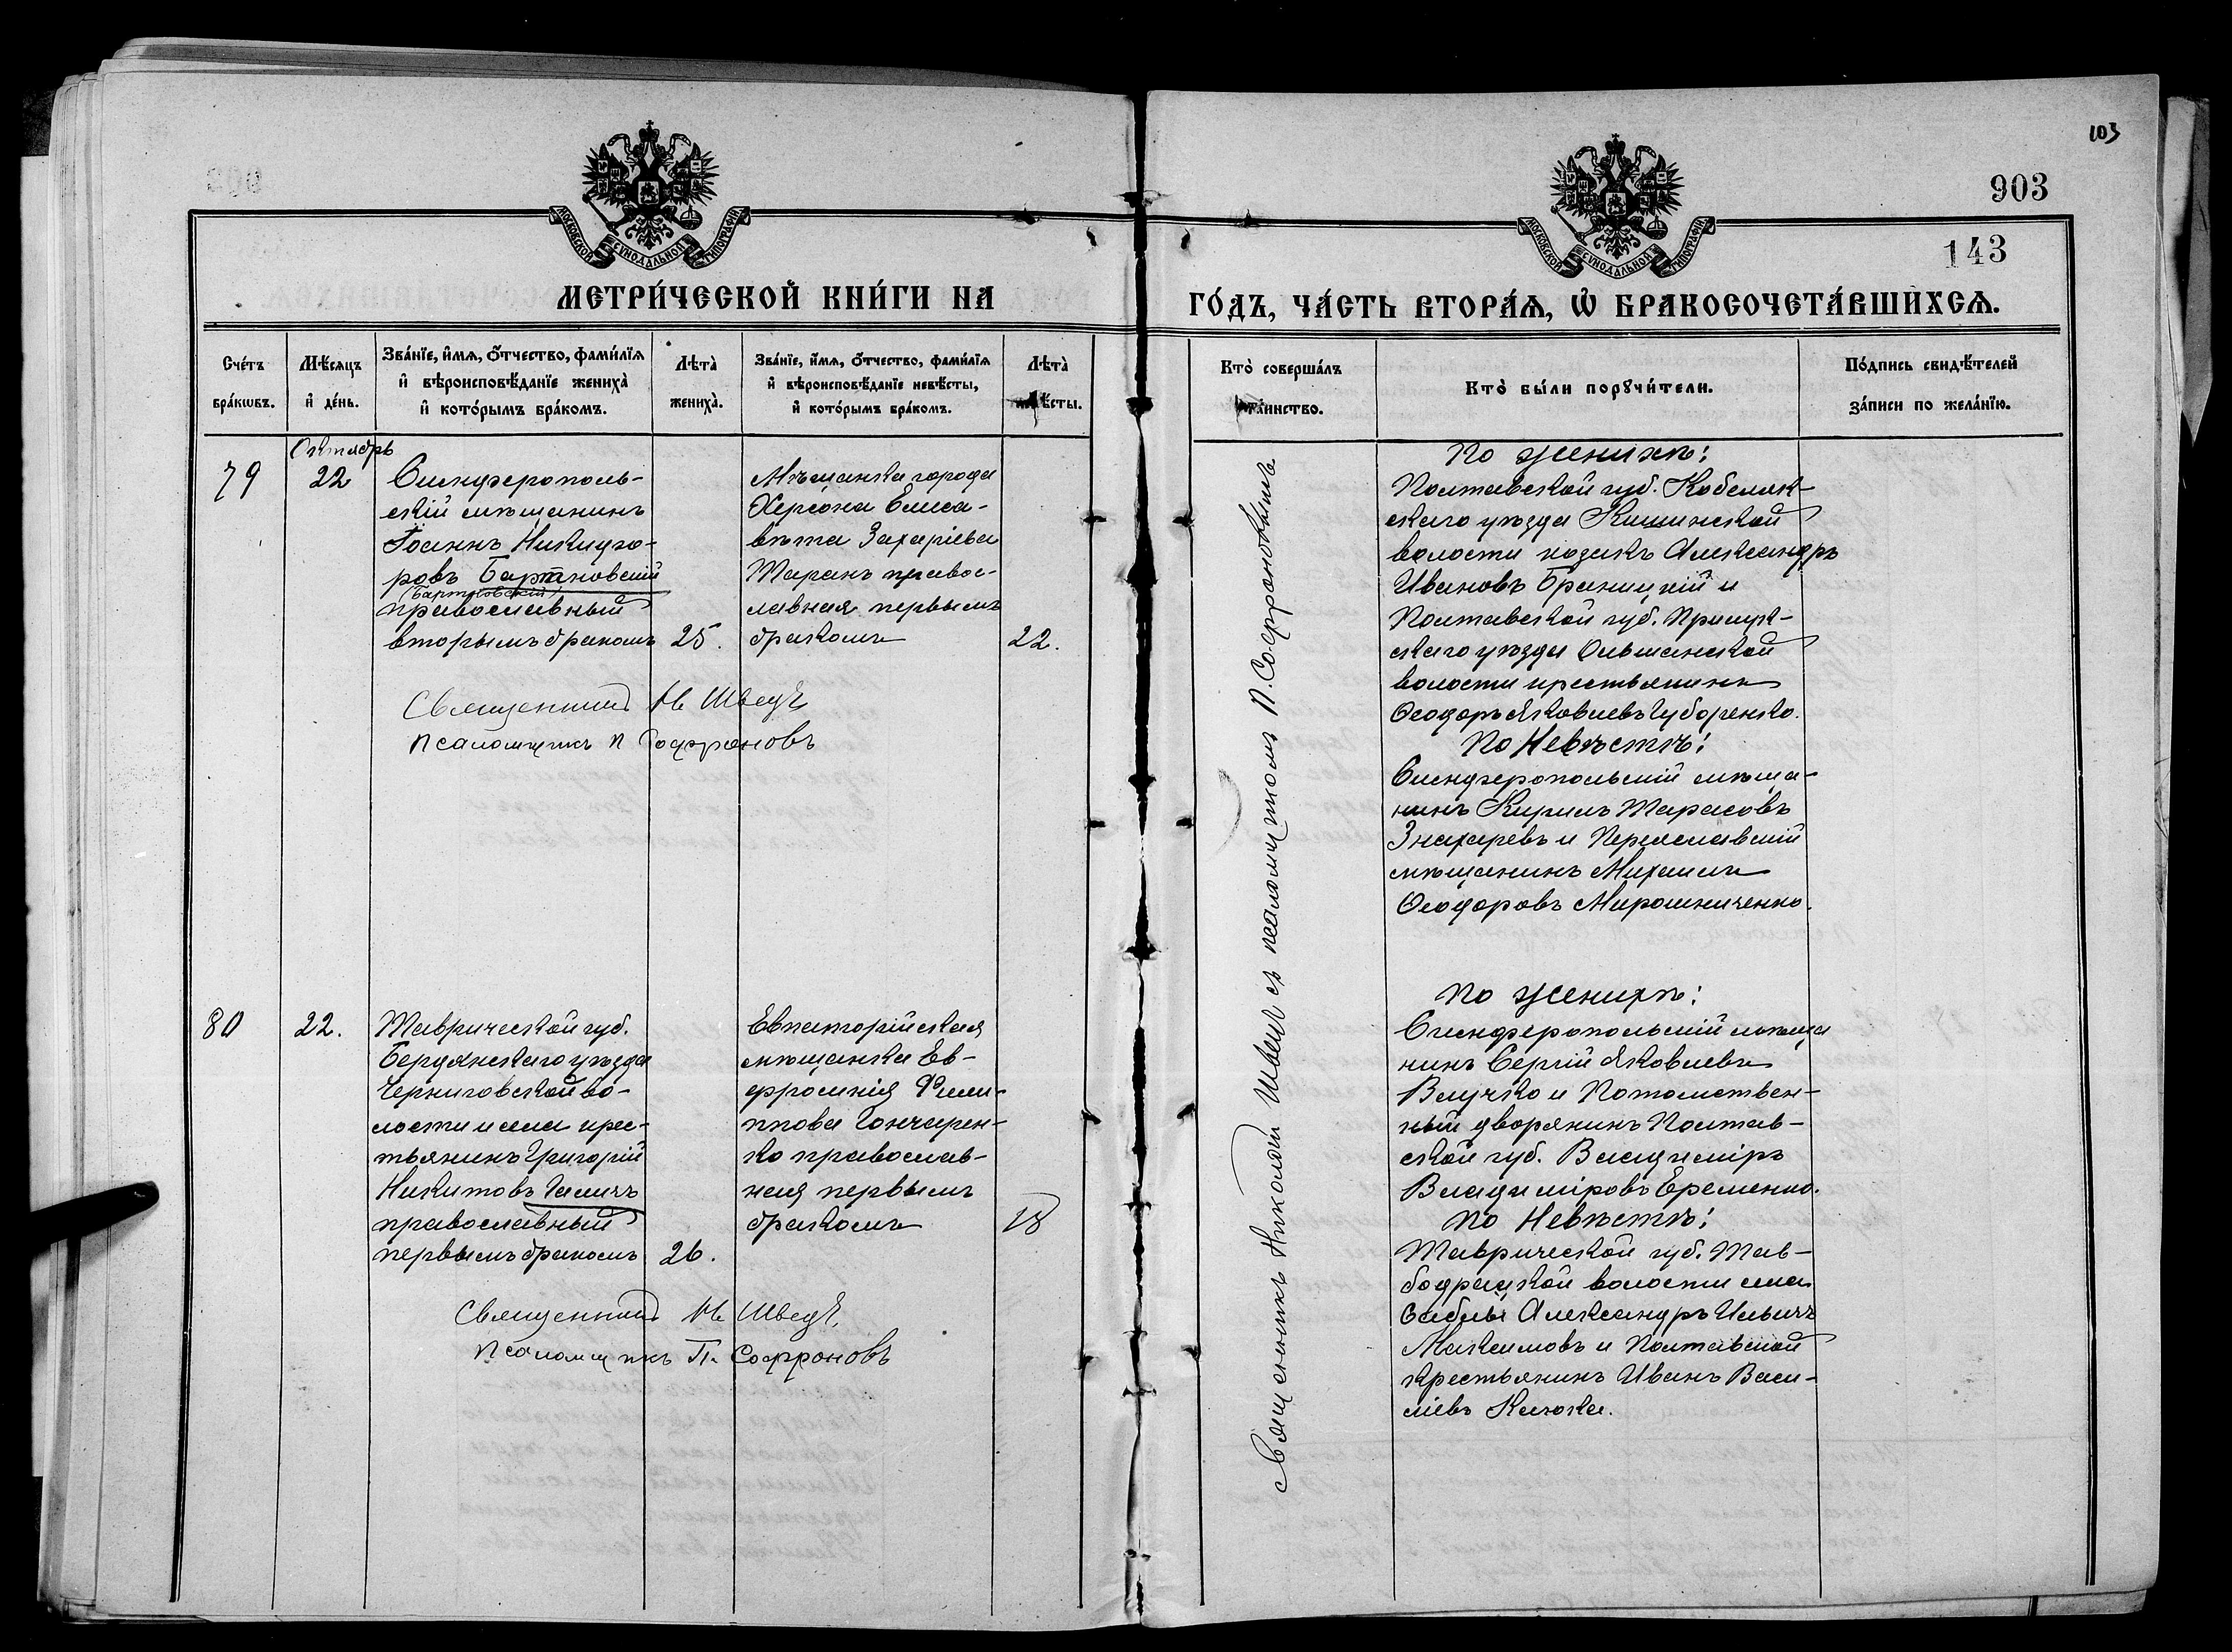 103
903
143
МОСКОВСКОЙ СѴНОДАЛЬНОЙ ТИПОГРАФІИ
МОСКОВСКОЙ СѴНОДАЛЬНОЙ ТИПОГРАФІИ
МЕТРИ́ЧЕСКОЙ КНИ́ГИ НА
ГО́ДЪ, ЧА́СТЬ ВТОРА́Я, Ѡ҆ БРАКОСОЧЕТА́ВШИХСЯ.
Сче́тъ
бра́кѡвъ.
Мѣ́сяцъ
и҆ де́нь.
Зва́нїе, и҆́мя, ѻ҆́тчество, фами́лїя
и҆ вѣроисповѣ́данїе жениха̀
и҆ кото́рымъ бра́комъ.
Лѣта̀
жениха̀.
Зва́нїе, и҆́мя, ѻ҆́тчество, фами́лїя
и҆ вѣроисповѣ́данїе невѣ́сты,
и҆ кото́рымъ бра́комъ.
Лѣта̀
невѣ́сты.
Кто̀ соверша́лъ
та́инство.
Кто̀ бы́ли порꙋчи́тели.
По́дпись свидѣ́телей
за́писи по жела́нїю.
Октябрь
79
22
Симферополь-
скій мѣщанинъ
Іоаннъ Никифо-
ровъ Бартновскій
(Бартновскій)
православный
вторымъ бракомъ
25.
Мѣщанка города
Херсона Елиса-
вѣта Захаріева
Таранъ правос-
лавная первымъ
бракомъ
22.
Священникъ Н. Шведъ
Псаломщикъ П Софроновъ
Священникъ Николай Шведъ съ псаломщикомъ П. Софроновымъ
По женихѣ:
Полтавской губ. Кобеляк-
скаго уѣзда Кишинской
волости козакъ Александръ
Ивановъ Браницкій и
Полтавской губ. Прилук-
скаго уѣзда Ольшанской
волости крестьянинъ
Ѳеодоръ Яковлевъ Губоренко.
По Невѣстѣ:
Симферопольскій мѣща-
нинъ Кирилъ Тарасовъ
Знахаревъ и Переяславскій
мѣщанинъ Михаилъ
Ѳеодоровъ Мирошниченко.
80
22.
Таврической губ.
Бердянскаго уѣзда
Черниговской во-
лости и села крес-
тьянинъ Григорій
Никитовъ Галичъ
православный
первымъ бракомъ
26.
Евпаторійская
мѣщанка Ев-
фросинія Фили-
ппова Гончарен-
ко православ-
ная первымъ
бракомъ
18
Священникъ Н. Шведъ,
Псаломщикъ П. Софроновъ
По женихѣ:
Симферопольскій мѣща
нинъ Сергій Яковлевъ
Величко и Потомствен-
ный дворянинъ Полтав-
ской губ. Владиміръ
Владиміровъ Еременко.
По Невѣстѣ:
Таврической губ. Тав-
бодрацкой волости села
Саблы Александръ Ильичъ
Максимовъ и Полтавской
крестьянинъ Иванъ Васи-
ліевъ Клюка.